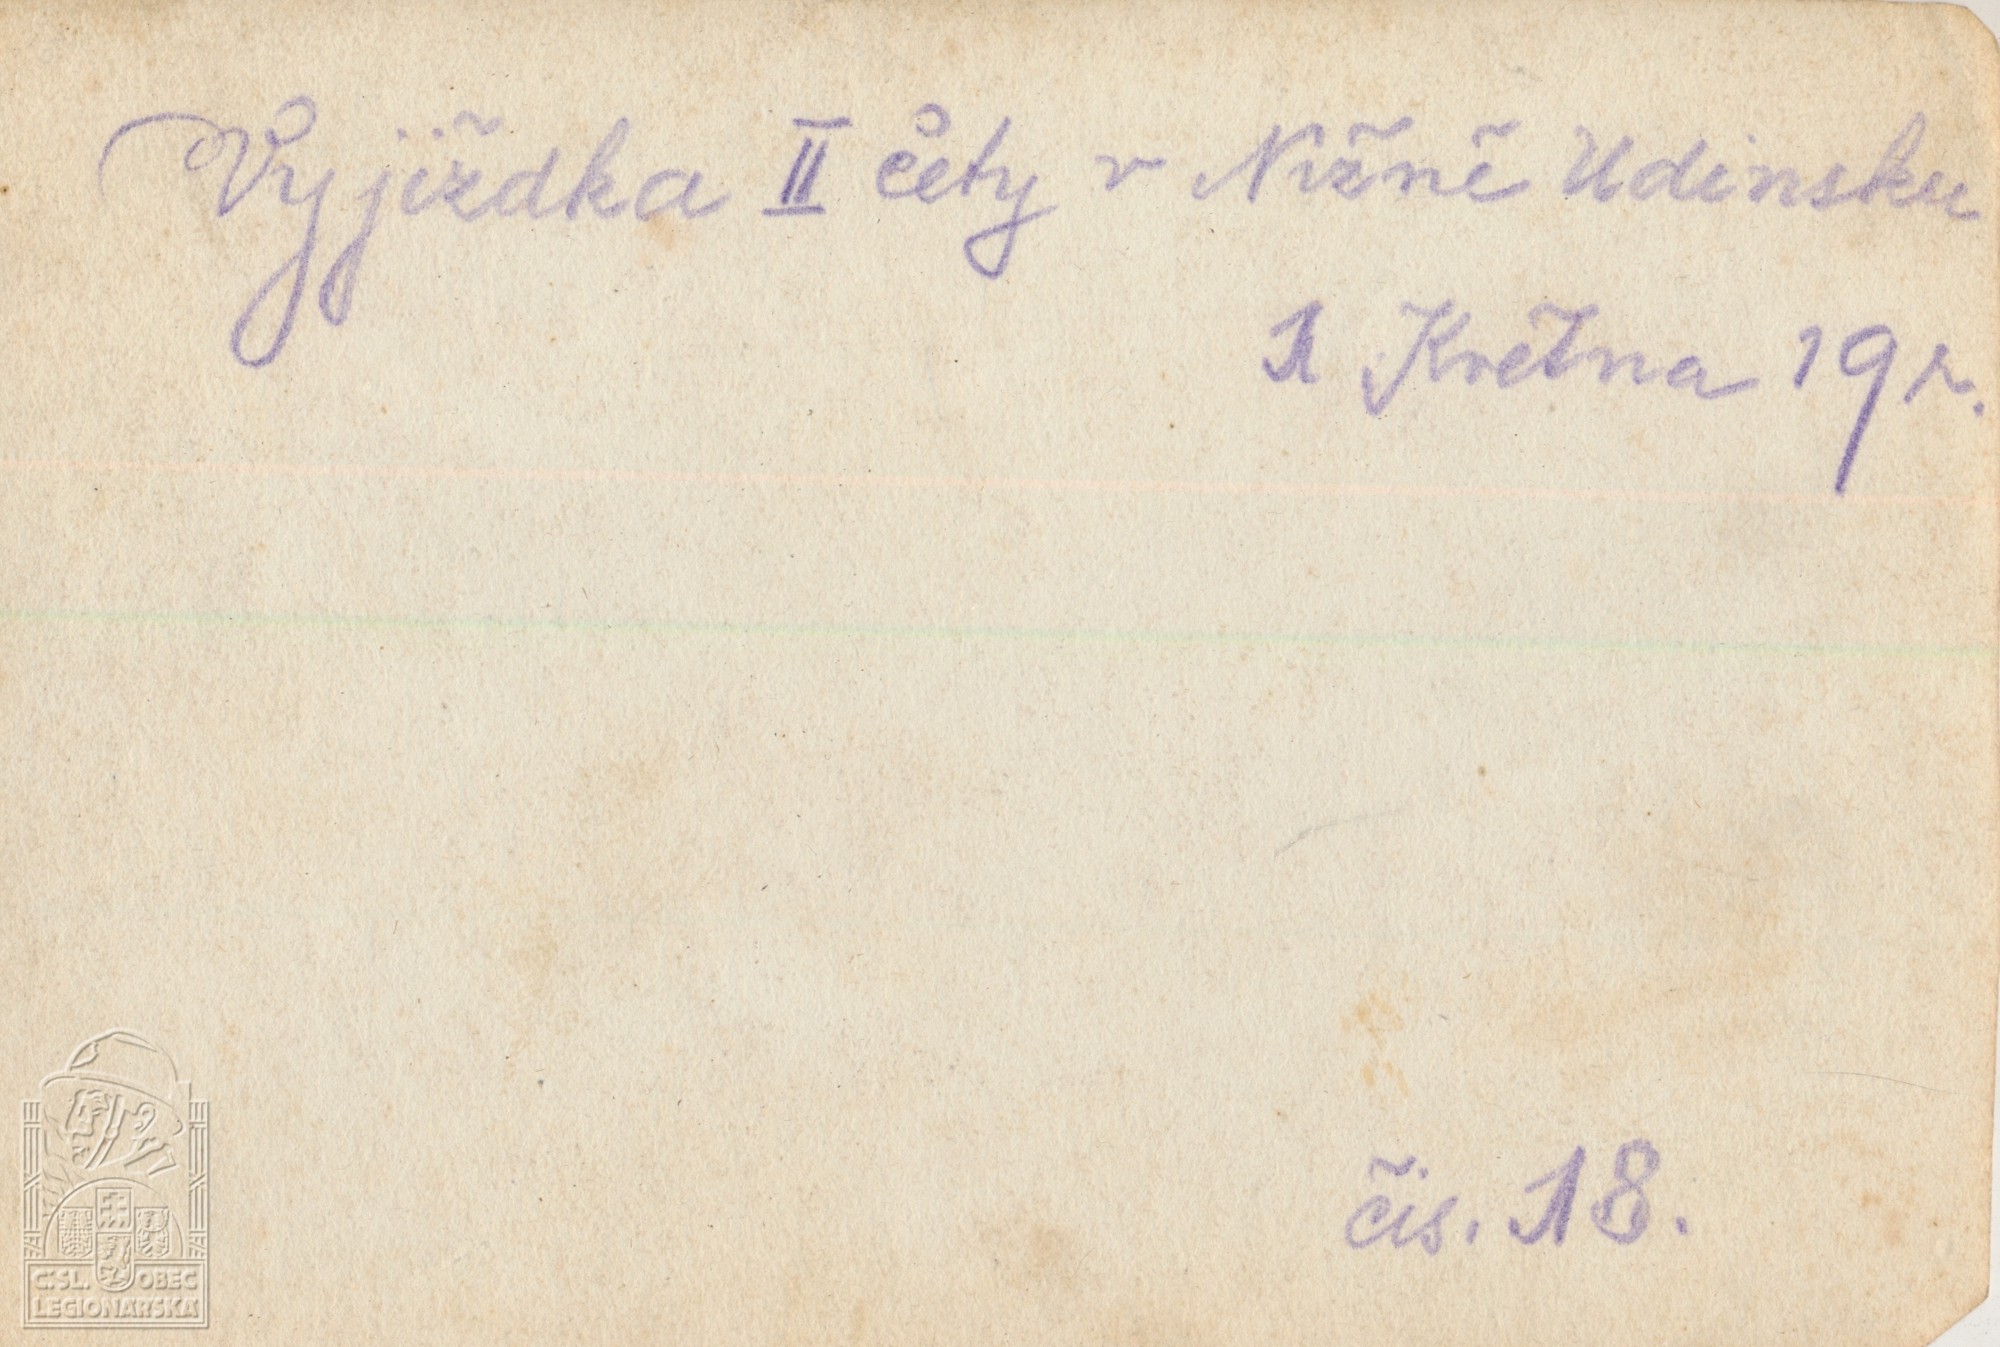 Vyjížďka II čety v Nižně Udinsku
1 Května 19 r.
čis. 18.
Č.SL. OBEC
LEGIONÁŘSKÁ